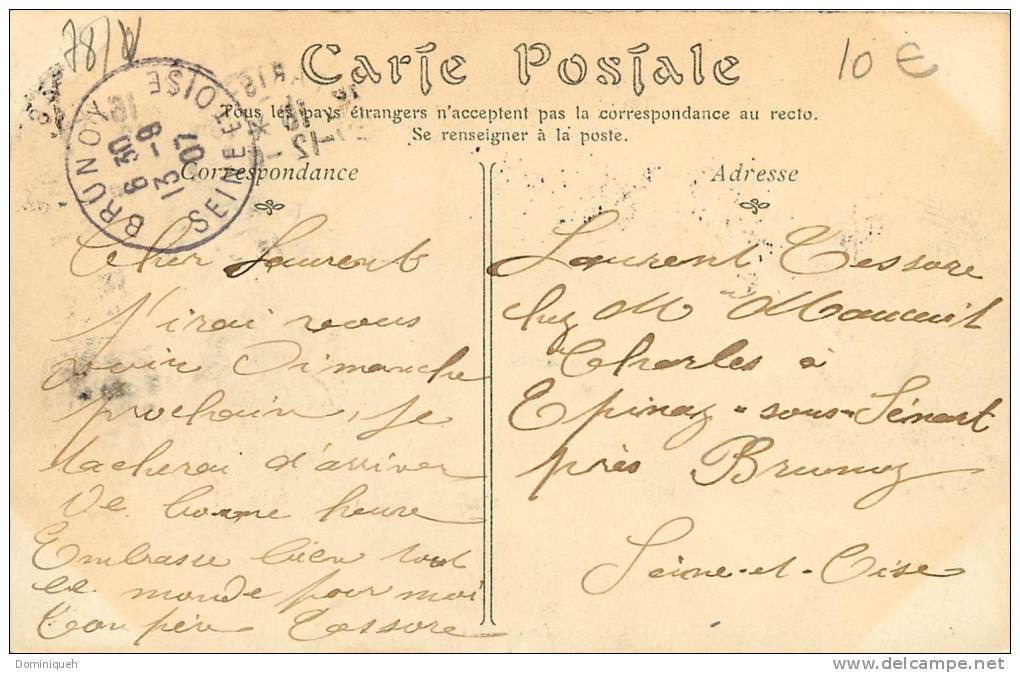 78/
10 €
Carte Postale
Tous les pays étrangers n'acceptent pas la correspondance au recto.
Se renseigner à la poste.
BRUNOY
6 30
13 - 9
07
SEINE ET OISE
Correspondance
Cher Laurent
J'irai vous
voir Dimanche
prochain, je
tacherai d'arriver
de bonne heure
Embrasse bien tout
le monde pour moi
Ton père Tessore
Adresse
Laurent Tessore
chez M
Charles à
Epinay-sous-Sénart
près Brunoy
Seine-et-Oise
Dominiqueh
http://www.delcampe.net